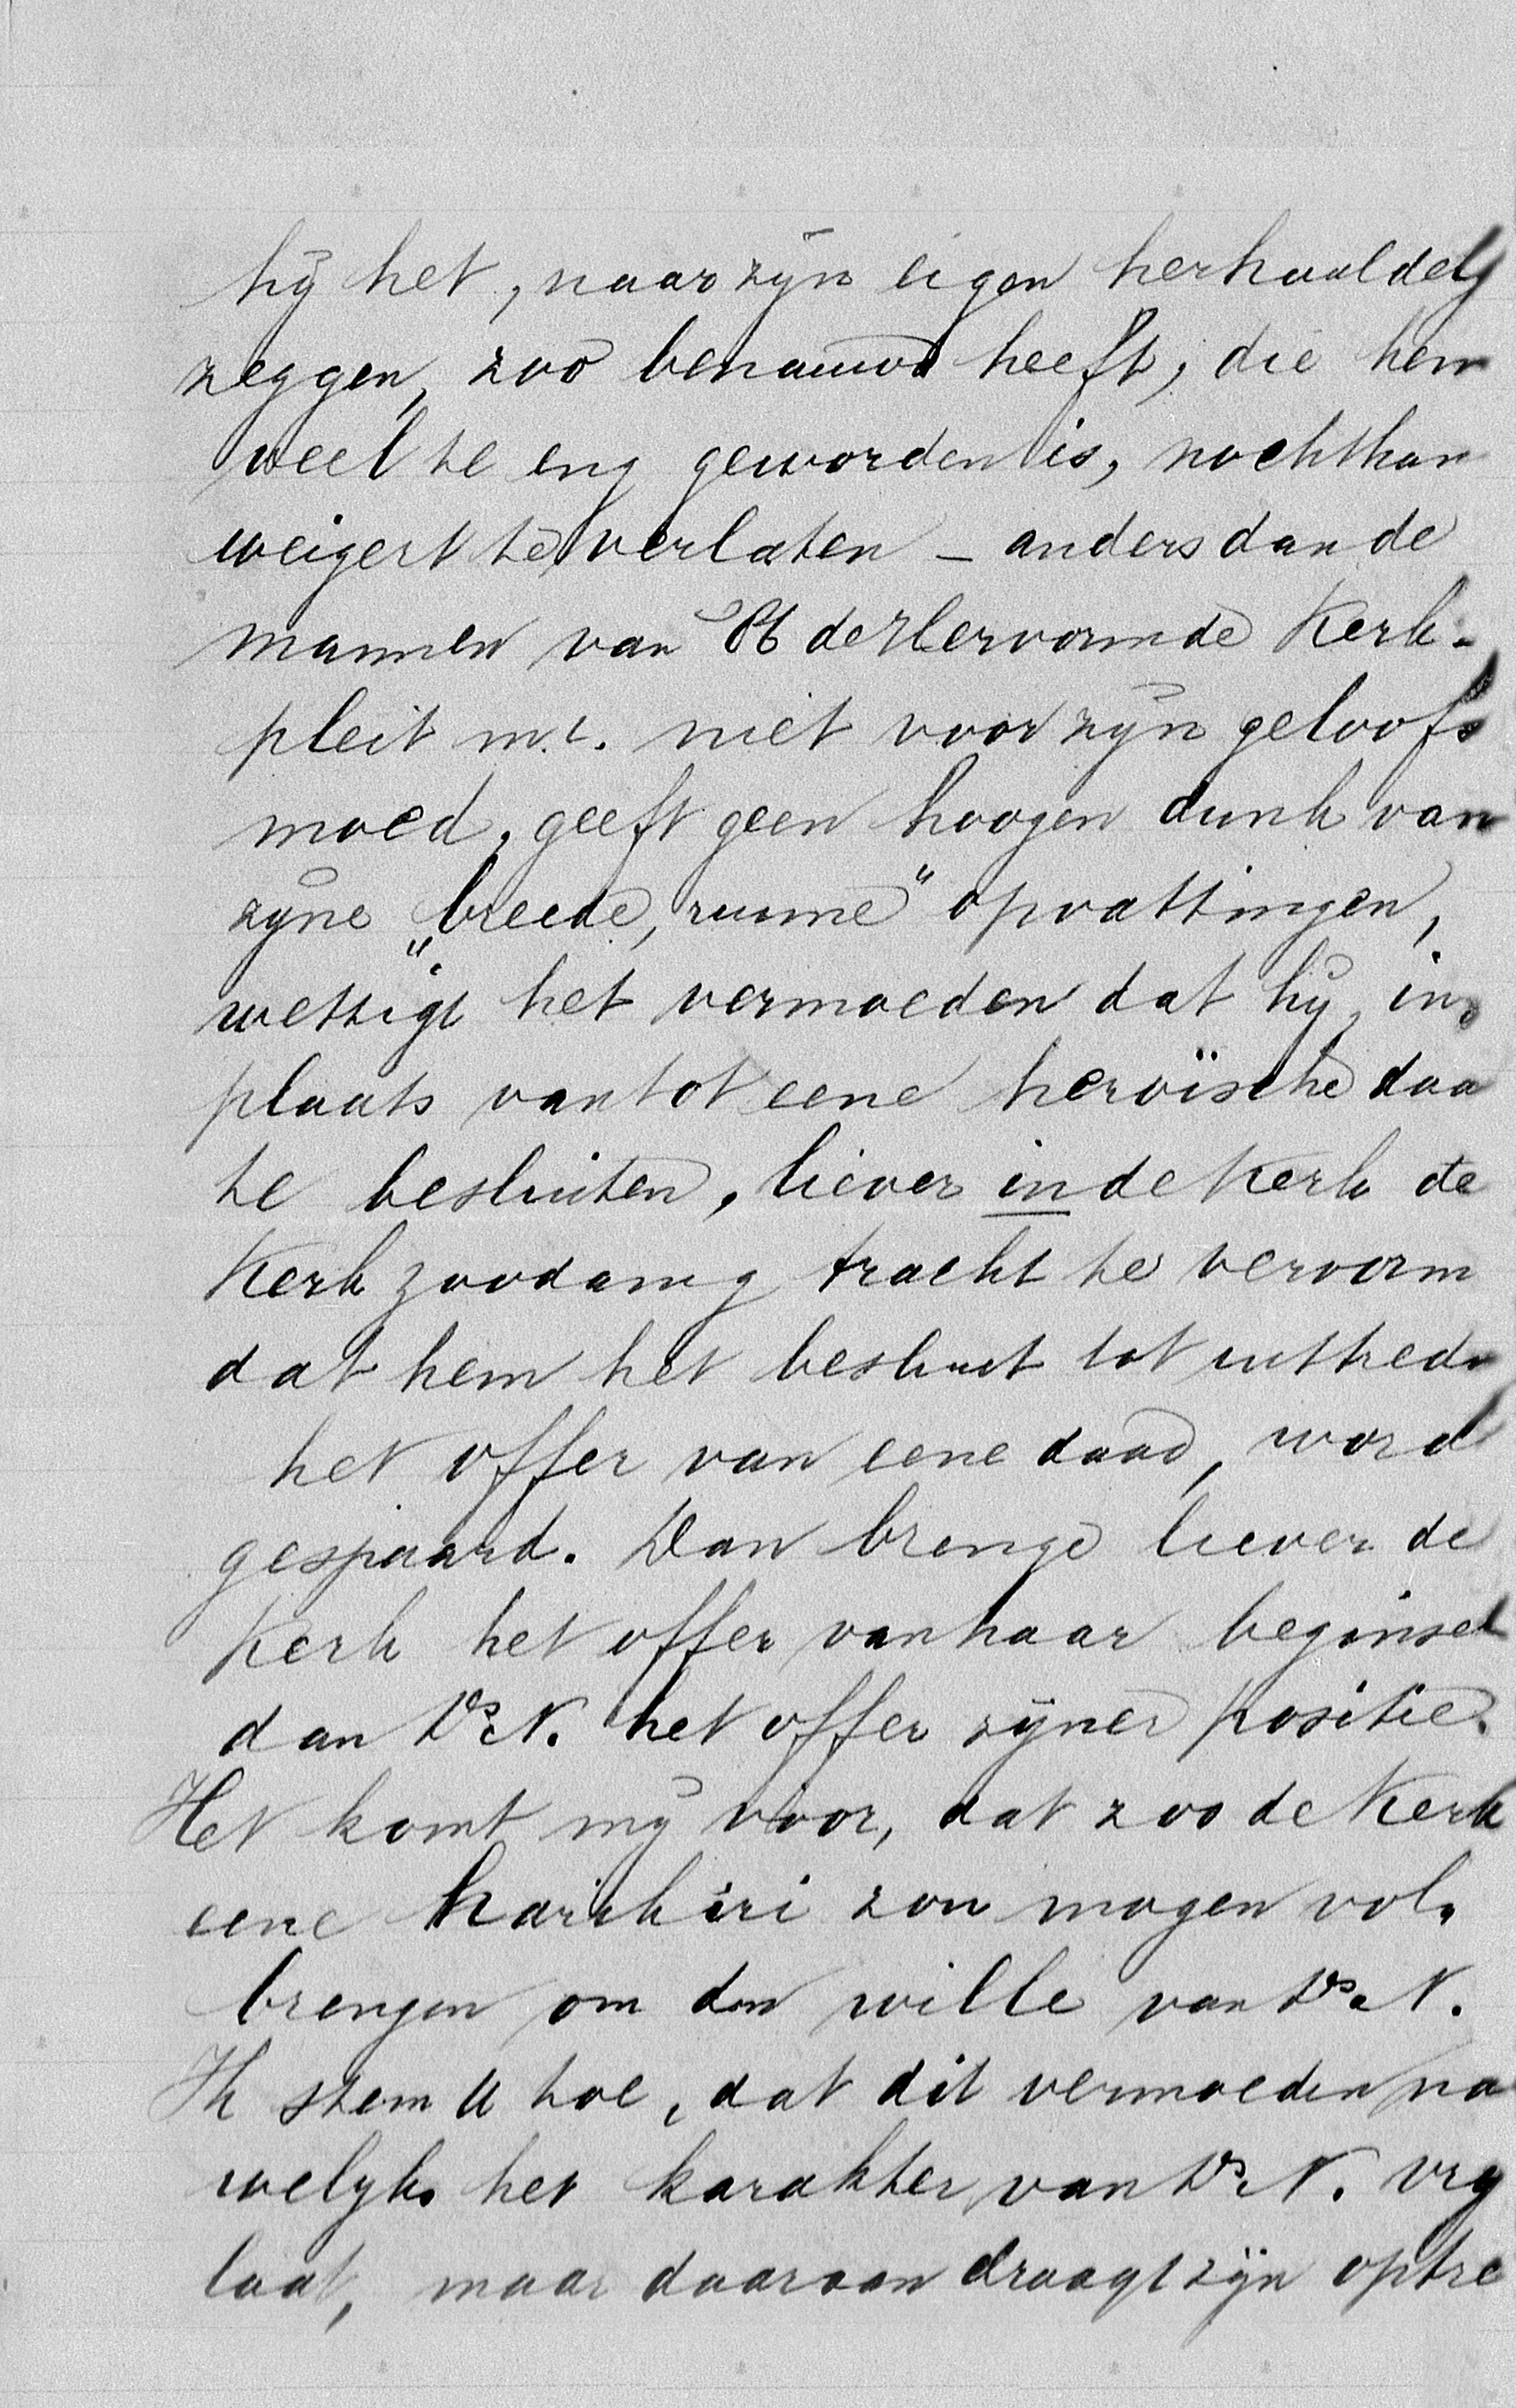 hij het, naar zijn eigen herhaaldelij
zeggen, zoo benauwd heeft, die hem
veel te eng geworden is, nochthan
weigert te verlaten — anders dan de
mannen van de Hervormde Kerk -
pleit m.i. niet voor zijn geloofs
moed, geeft geen hoogen dunk van
zijne „breede, ruime" opvattingen,
wettigt het vermoeden dat hij, in
plaats van tot eene heroïsche daa
te besluiten, liever in de Kerk de
Kerk zoodanig tracht te vervorm
dat hem het besluit tot uittrede
het offer van eene daad, word
gespaard. Dan brenge liever de
Kerk het offer van haar beginsel
dan Ds. N. het offer zijner positie.
Het komt mij voor, dat zoo de Kerk
eene harikiri zou mogen vol-
brengen om den wille van Ds. N.
Ik stem U toe, dat dit vermoeden na
welijks het karakter van Ds. N. vrij
laat, maar daaraan draagt zijn optre